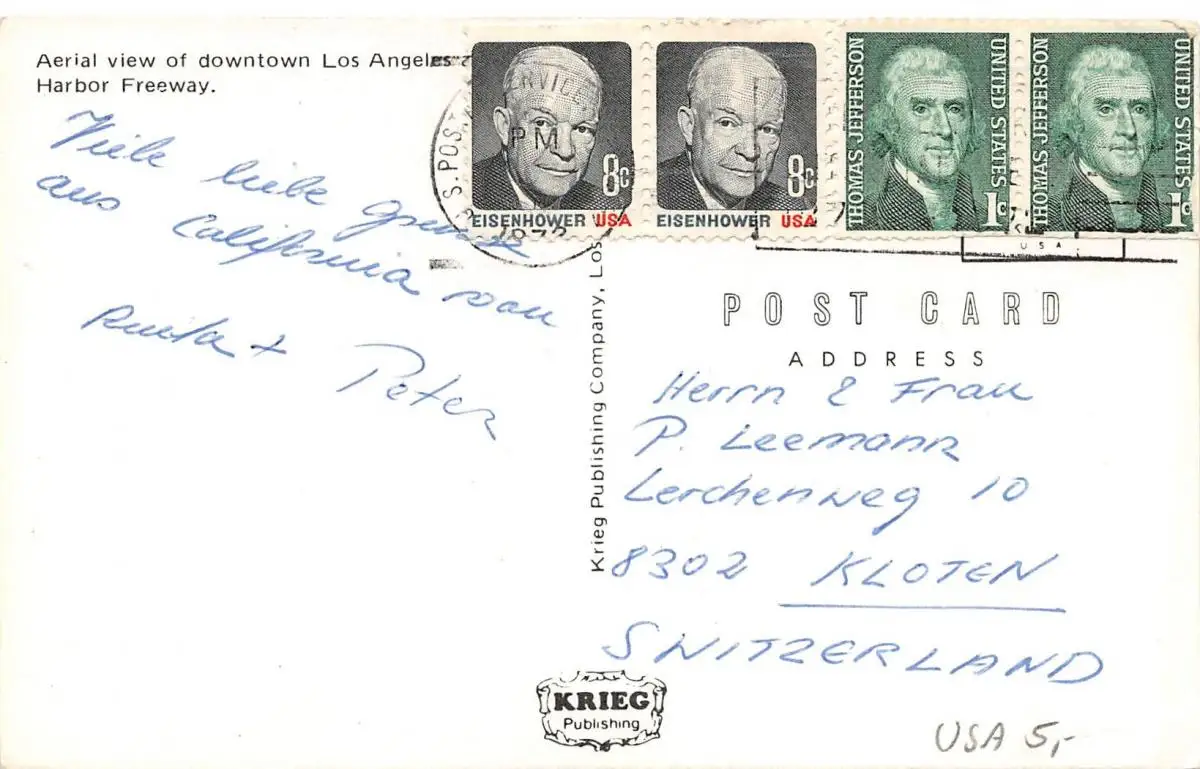 Aerial view of downtown Los Angeles
Harbor Freeway.
Viele liebe Grüsse
aus California von
+ Peter
U.S. POST
PM
1972
8c
EISENHOWER USA
8c
EISENHOWER USA
THOMAS JEFFERSON
UNITED STATES
1c
THOMAS JEFFERSON
UNITED STATES
1c
USA
Krieg Publishing Company, Los
POST CARD
ADDRESS
Herrn & Frau
P. Leemann
Lerchenweg 10
8302 KLOTEN
SWITZERLAND
KRIEG
Publishing
USA 5,-